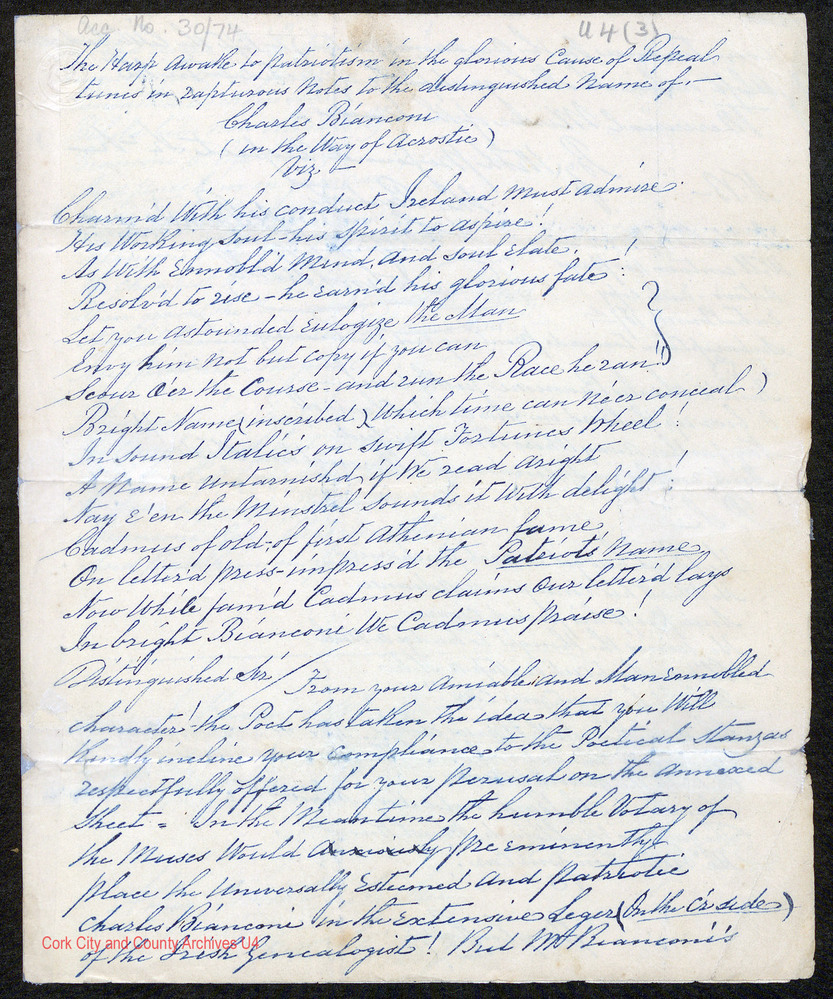 Acc. No. 30/74
U4(3)
The Harp awake to patriotism in the glorious Cause of Repeal
tunes in rapturous Notes to the distinguished Name of —
Charles Bianconi
(in the Way of Acrostic)
Viz —
Charm'd With his conduct Ireland must admire
His Working Soul - his Spirit to aspire!
As With Ennobl'd Mind, And Soul Elate,
Resolv'd to rise - he earn'd his glorious fate!
Let you astounded eulogize the Man
Envy him not but copy if you can
Scour O'er the Course - and run the Race he ran!!
Bright Name (inscribed) Which time can ne'er conceal)
In Sound Italic's on swift Fortunes Wheel!
A Name untarnish'd if We read aright
Nay E'en the Minstrel sounds it With delight!
Cadmus of old - of first Athenian fame
On letter'd press - impress'd the Patriots' Name
Now While fam'd Cadmus claims Our letter'd lays
In bright Bianconi We Cadmus praise!
Distinguished Sir/
From your amiable and Man ennobled
character! - the Poet has taken the idea that you Will
Kindly incline your compliance to the Poetical Stanzas
respectfully offered for your perusal on the Annexed
Sheet = In the Meantime the humble Votary of
the Muses Would anxiously pre eminently
place the Universally Esteemed and patriotic
Charles Bianconi in the Extensive Leger (On the Cr. side)
of the Irish Genealogist! But Mr Bianconi's
Cork City and County Archives U4